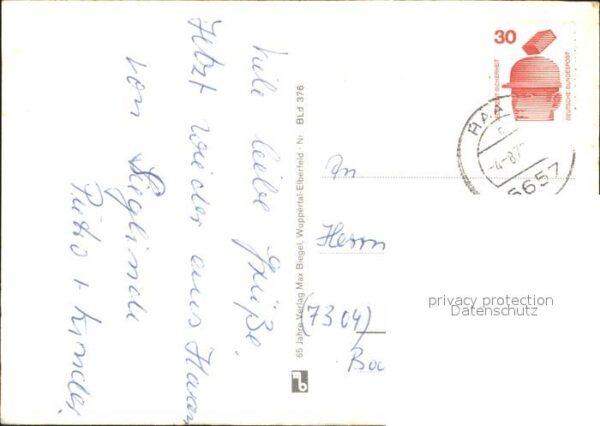 Viele liebe Grüße.
Jetzt wieder aus Haan
von Sieglinde
Pietro + Kinder.
65 Jahre Verlag Max Biegel, Wuppertal-Elberfeld · Nr BLd 376
30
SICHERHEIT
DEUTSCHE BUNDESPOST
HAA
-4-8.7
5657
An
Herrn
(7304)
privacy protection
Datenschutz